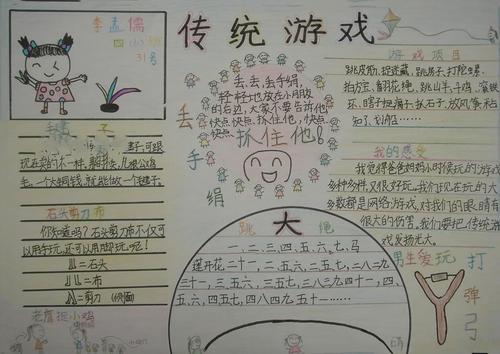 李孟儒
四(小)班
31号
传统游戏
毽子
毽子,可跟
现在卖的不一样。几根公鸡
毛,一个大铜钱,就能做一个毽子。
石头剪刀布
你知道吗?石头剪刀布不仅可
以用手玩,还可以用脚玩呢!
=石头
=布
=剪刀
老鹰捉小鸡
丢手绢
丢,丢,丢手绢,
轻轻地放在小朋友
的后边,大家不要告诉他
快点快点抓住他,快点
快点抓住他。
跳大绳
一、二、三、四、五、六、七、马
莲开花二十一,二五六,二五七,二八二九
三十一,三五六,三五七,三八三九四十一,四
五六,四五七,四八四九五十一……
游戏项目
跳皮筋、捉迷藏、跳房子、打陀螺、
拍方宝、翻花绳、跳山羊、斗鸡、滚铁
环、瞎子捉、抓石子、放风筝、
我的感受
我觉得爸爸妈妈小时候玩的游戏
多种多样,又很好玩。我们现在玩的大
多数都是网络游戏,对我们的眼睛有
很大的伤害。我们要把传统游
戏发扬光大。
男生爱玩打弹弓